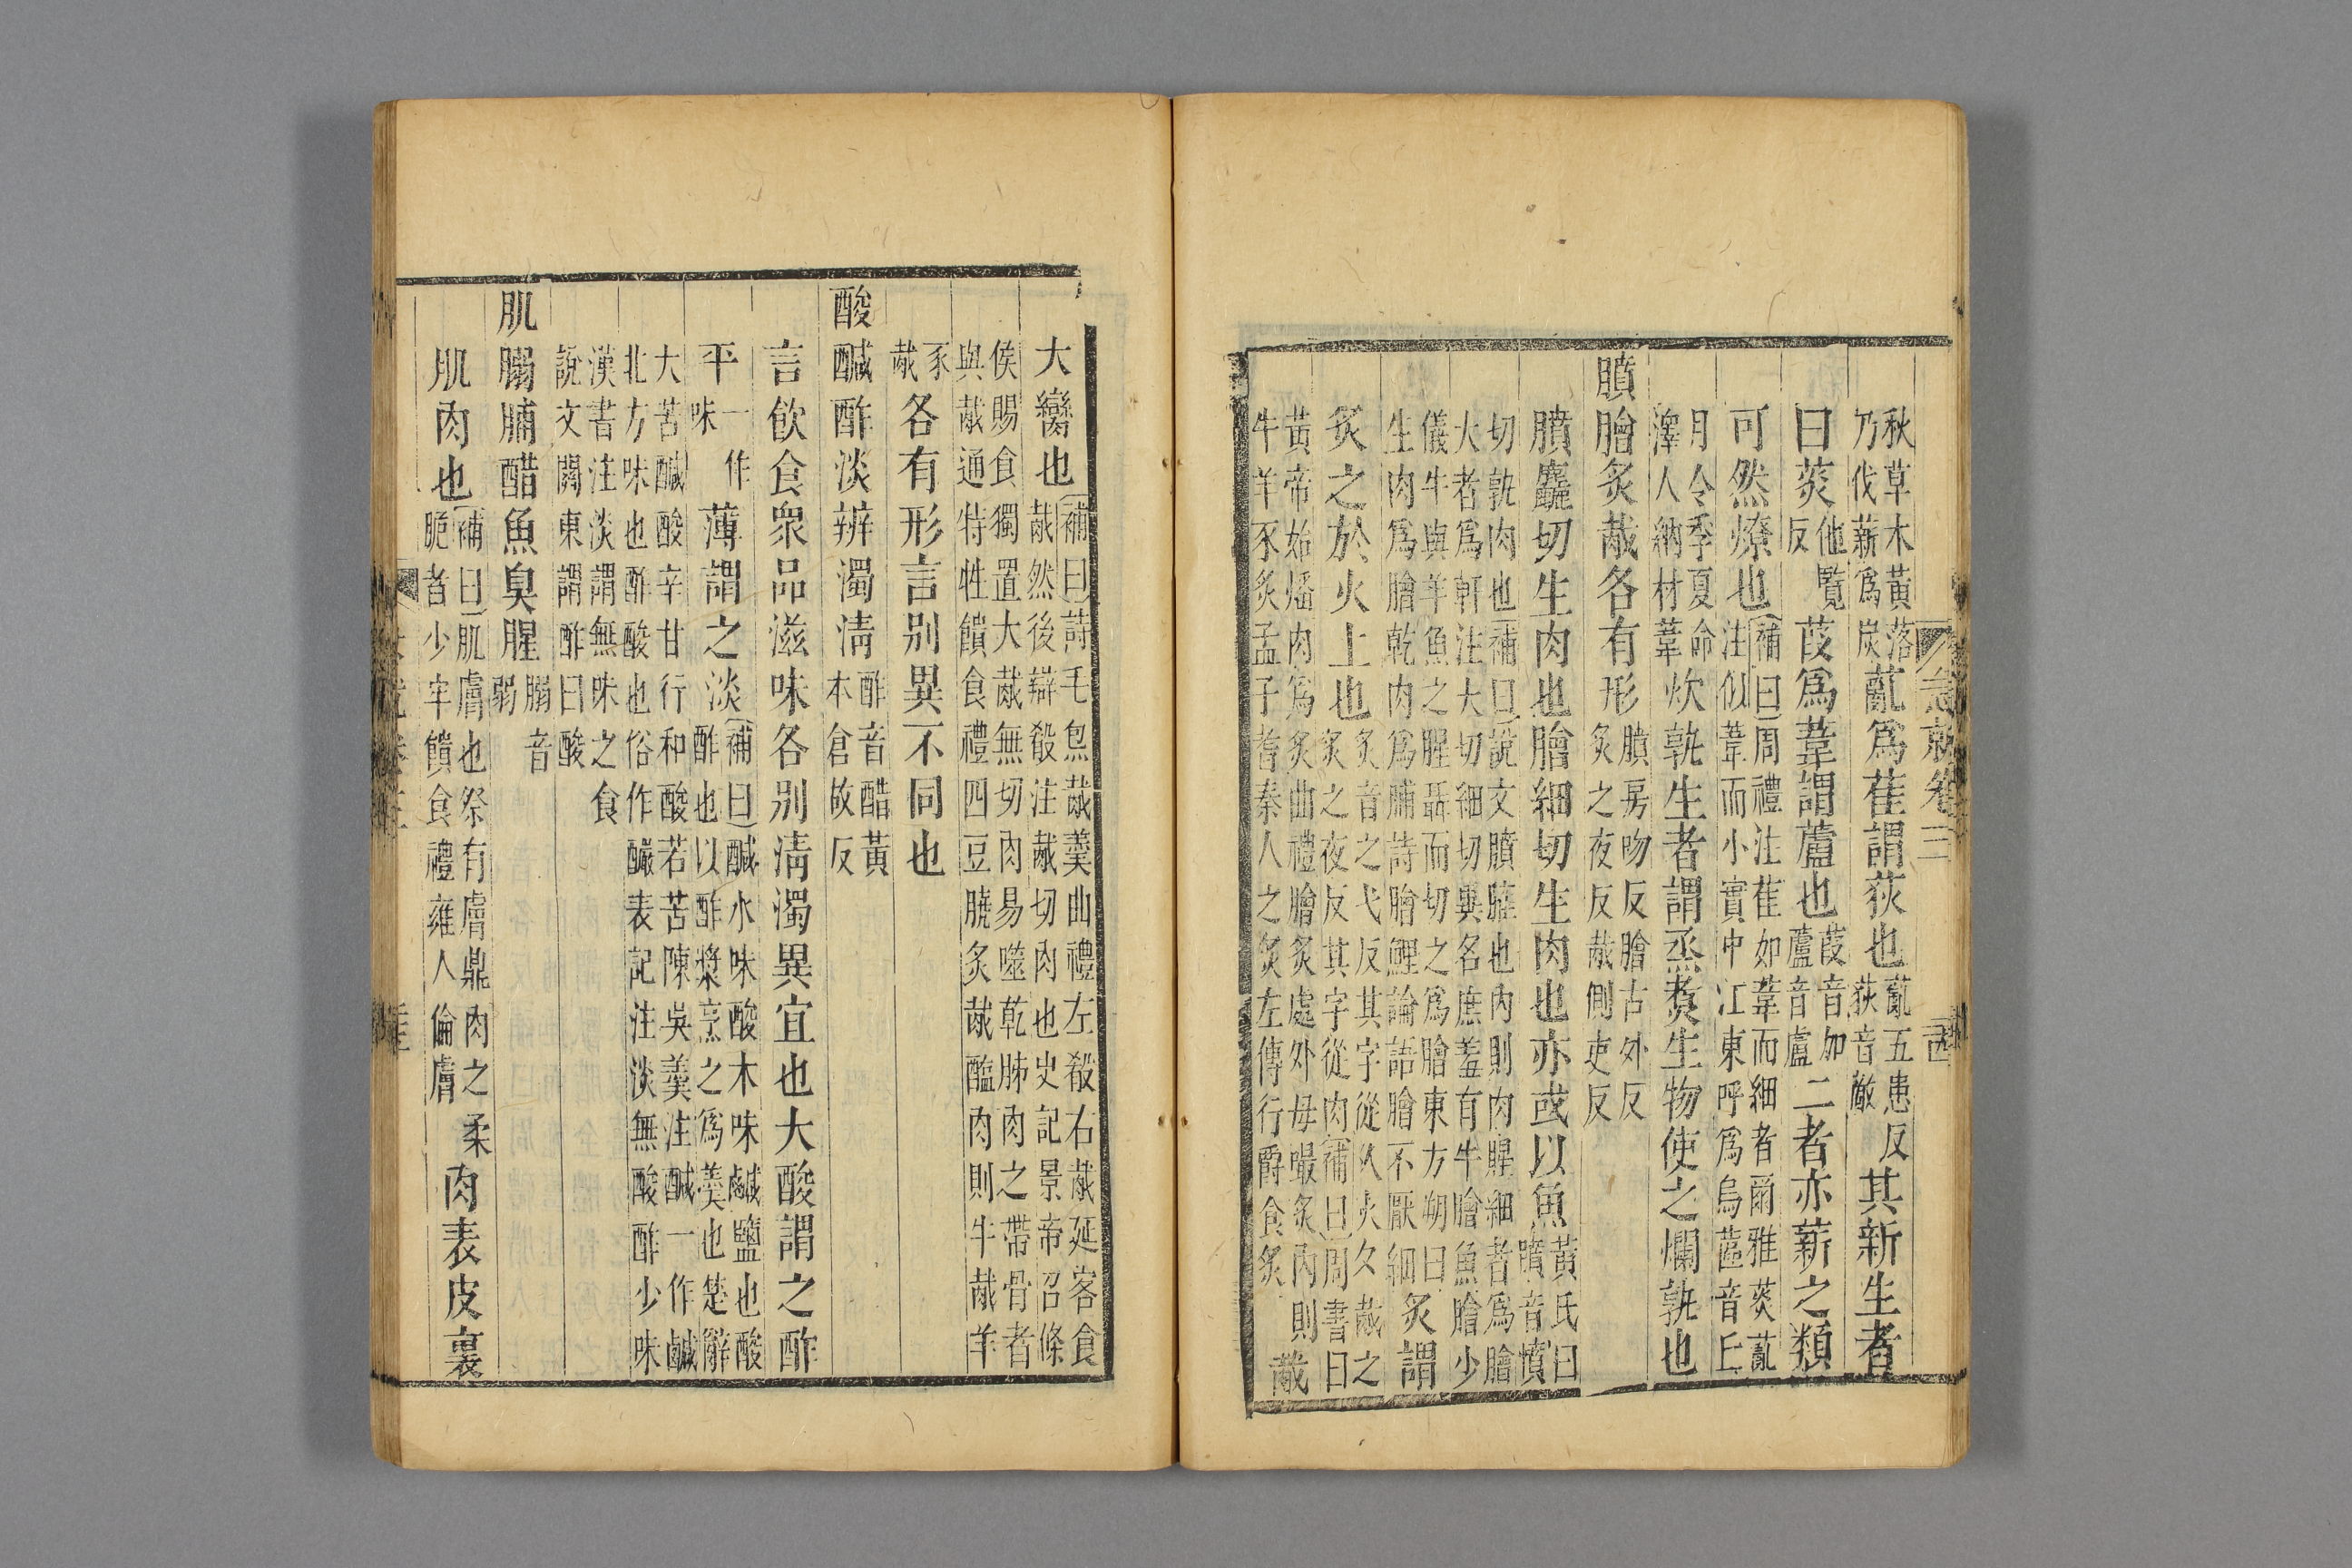 急就卷三
秋草木黄落
乃伐薪爲炭
薍爲萑謂荻也
薍五患反
荻音敵
其新生者
曰菼
他覽
反
葭爲葦謂蘆也
葭音加
蘆音盧
二者亦薪之類
可然燎也
補曰周禮注萑如葦而細者爾雅菼薍
注似葦而小實中江東呼爲烏蓲音丘
月令季夏命
澤人納材葦
炊孰生者謂烝煑生物使之爛孰也
膹膾炙胾各有形
膹房吻反膾古外反
炙之夜反胾側吏反
膹麤切生肉也膾細切生肉也亦或以魚
黄氏曰
膹音憤
切孰肉也補曰說文膹臛也内則肉腥細者爲膾
大者爲軒注大切細切異名庶羞有牛膾魚膾少
儀牛與羊魚之腥聶而切之爲膾東方朔曰
生肉爲膾乾肉爲脯詩膾鯉論語膾不厭細
炙謂
炙之於火上也
炙音之弋反其字從夊火久胾之
炙之夜反其字從肉補曰周書曰
黄帝始燔肉爲炙曲禮膾炙處外毋嘬炙内則
牛羊豕炙孟子耆秦人之炙左傳行爵食炙
胾
大臠也
補曰詩毛炰胾羹曲禮左殽右胾延客食
胾然後辯殽注胾切肉也史記景帝召條
侯賜食獨置大胾無切肉易噬乾胏肉之帶骨者
與胾通特牲饋食禮四豆膮炙胾醢内則牛胾羊
豕
胾
各有形言别異不同也
酸醎酢淡辨濁清
酢音醋黄
本倉故反
言飲食衆品滋味各别清濁異宜也大酸謂之酢
平
一作
味
薄謂之淡
補曰醎水味酸木味鹹鹽也酸
酢也以酢漿烹之爲羹也楚辭
大苦醎酸辛甘行和酸若苦陳吳羹注醎一作鹹
北方味也酢酸也俗作釅表記注淡無酸酢少味
漢書注淡謂無味之食
說文關東謂酢曰酸
肌腝脯腊魚臭腥
腝音
弱
肌肉也
補曰肌膚也祭有膚鼎肉之柔
脆者少牢饋食禮雍人倫膚
肉表皮裏